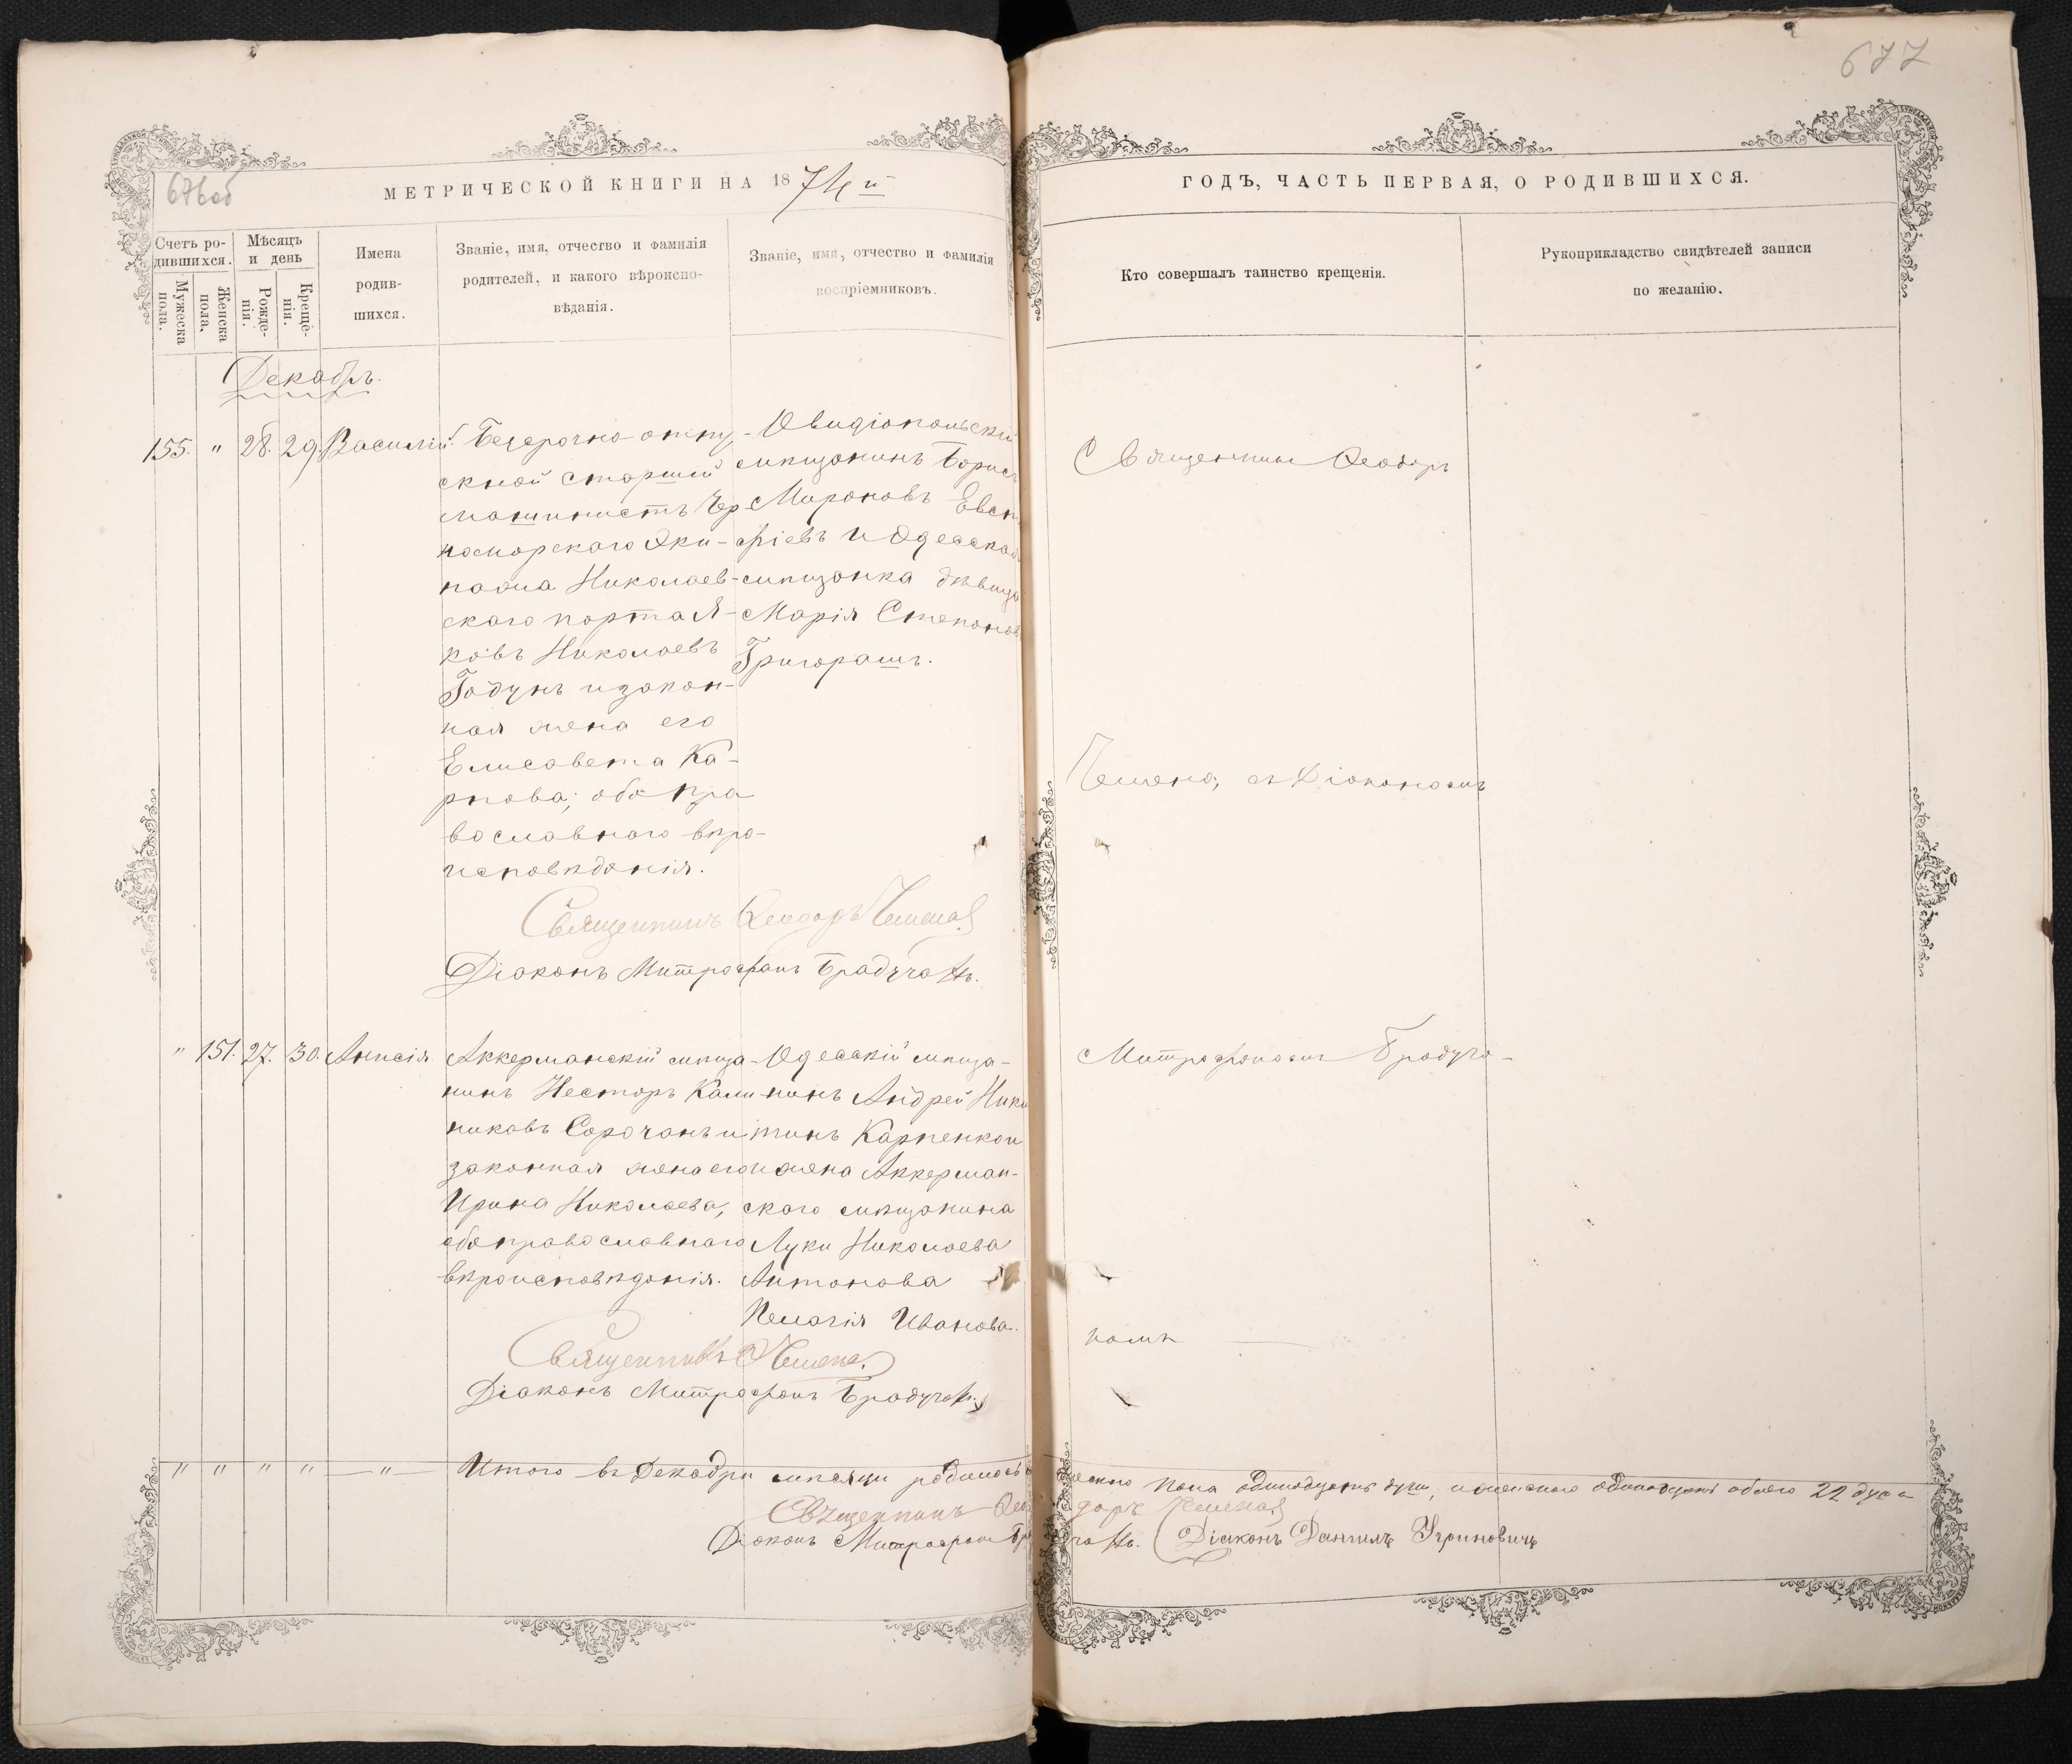 677
676об
МЕТРИЧЕСКОЙ КНИГИ НА 1874й
ГОДЪ, ЧАСТЬ ПЕРВАЯ, О РОДИВШИХСЯ.
Счетъ ро-
дившихся.
Мужеска
пола.
Женска
пола.
Мѣсяцъ
и день
Рожде-
нія.
Креще-
нія.
Имена
родив-
шихся.
Званіе, имя, отчество и фамилія
родителей, и какого вѣроиспо-
вѣданія.
Званіе, имя, отчество и фамилія
воспріемниковъ.
Кто совершалъ таинство крещенія.
Рукоприкладство свидѣтелей записи
по желанію.
Декабрь.
155. " 28. 29. Василій.
Безсрочно-отпу-
скной старшій
машинистъ Чер-
номорского Эки-
пажа Николаев-
скаго порта Я-
ковъ Николаевъ
Годунъ и закон-
ная жена его
Елисавета Ка-
рпова; оба пра
вославнаго вѣро-
исповѣданія.
Овидіопольскій
мѣщанинъ Борисъ
Мироновъ
и Одесская
мѣщанка дѣвица
Марія Степанова
Григорашъ.
Священникъ Ѳеодоръ
Чемена, съ Діакономъ
Священникъ Ѳеодоръ Чемена
Діаконъ Митрофанъ Брадучанъ.
" 151. 27. 30. Анисія
Аккерманскій мѣща-
нинъ Несторъ Кали
никовъ Сорочанъ и
законная жена его
Ирина Николаева,
оба православнаго
вѣроисповѣданія.
Одесскій мѣща-
нинъ Андрей Ники
тинъ Карпенко и
жена Аккерман-
скаго мѣщанина
Луки Николаева
Антонова
Пелагія Иванова.
Митрофаномъ Брадуча-
номъ
Священникъ Чемена.
Діаконъ Митрофанъ Брадучанъ
" " " " — " —
Итого въ Декабрѣ мѣсяцѣ родилось мужеского пола одинадцать душъ, и женскаго одинадцать обоего 22 души
Священникъ Ѳеодоръ Чемена
Діаконъ Митрофанъ Брадучанъ. Діаконъ Даніилъ Угриновичъ